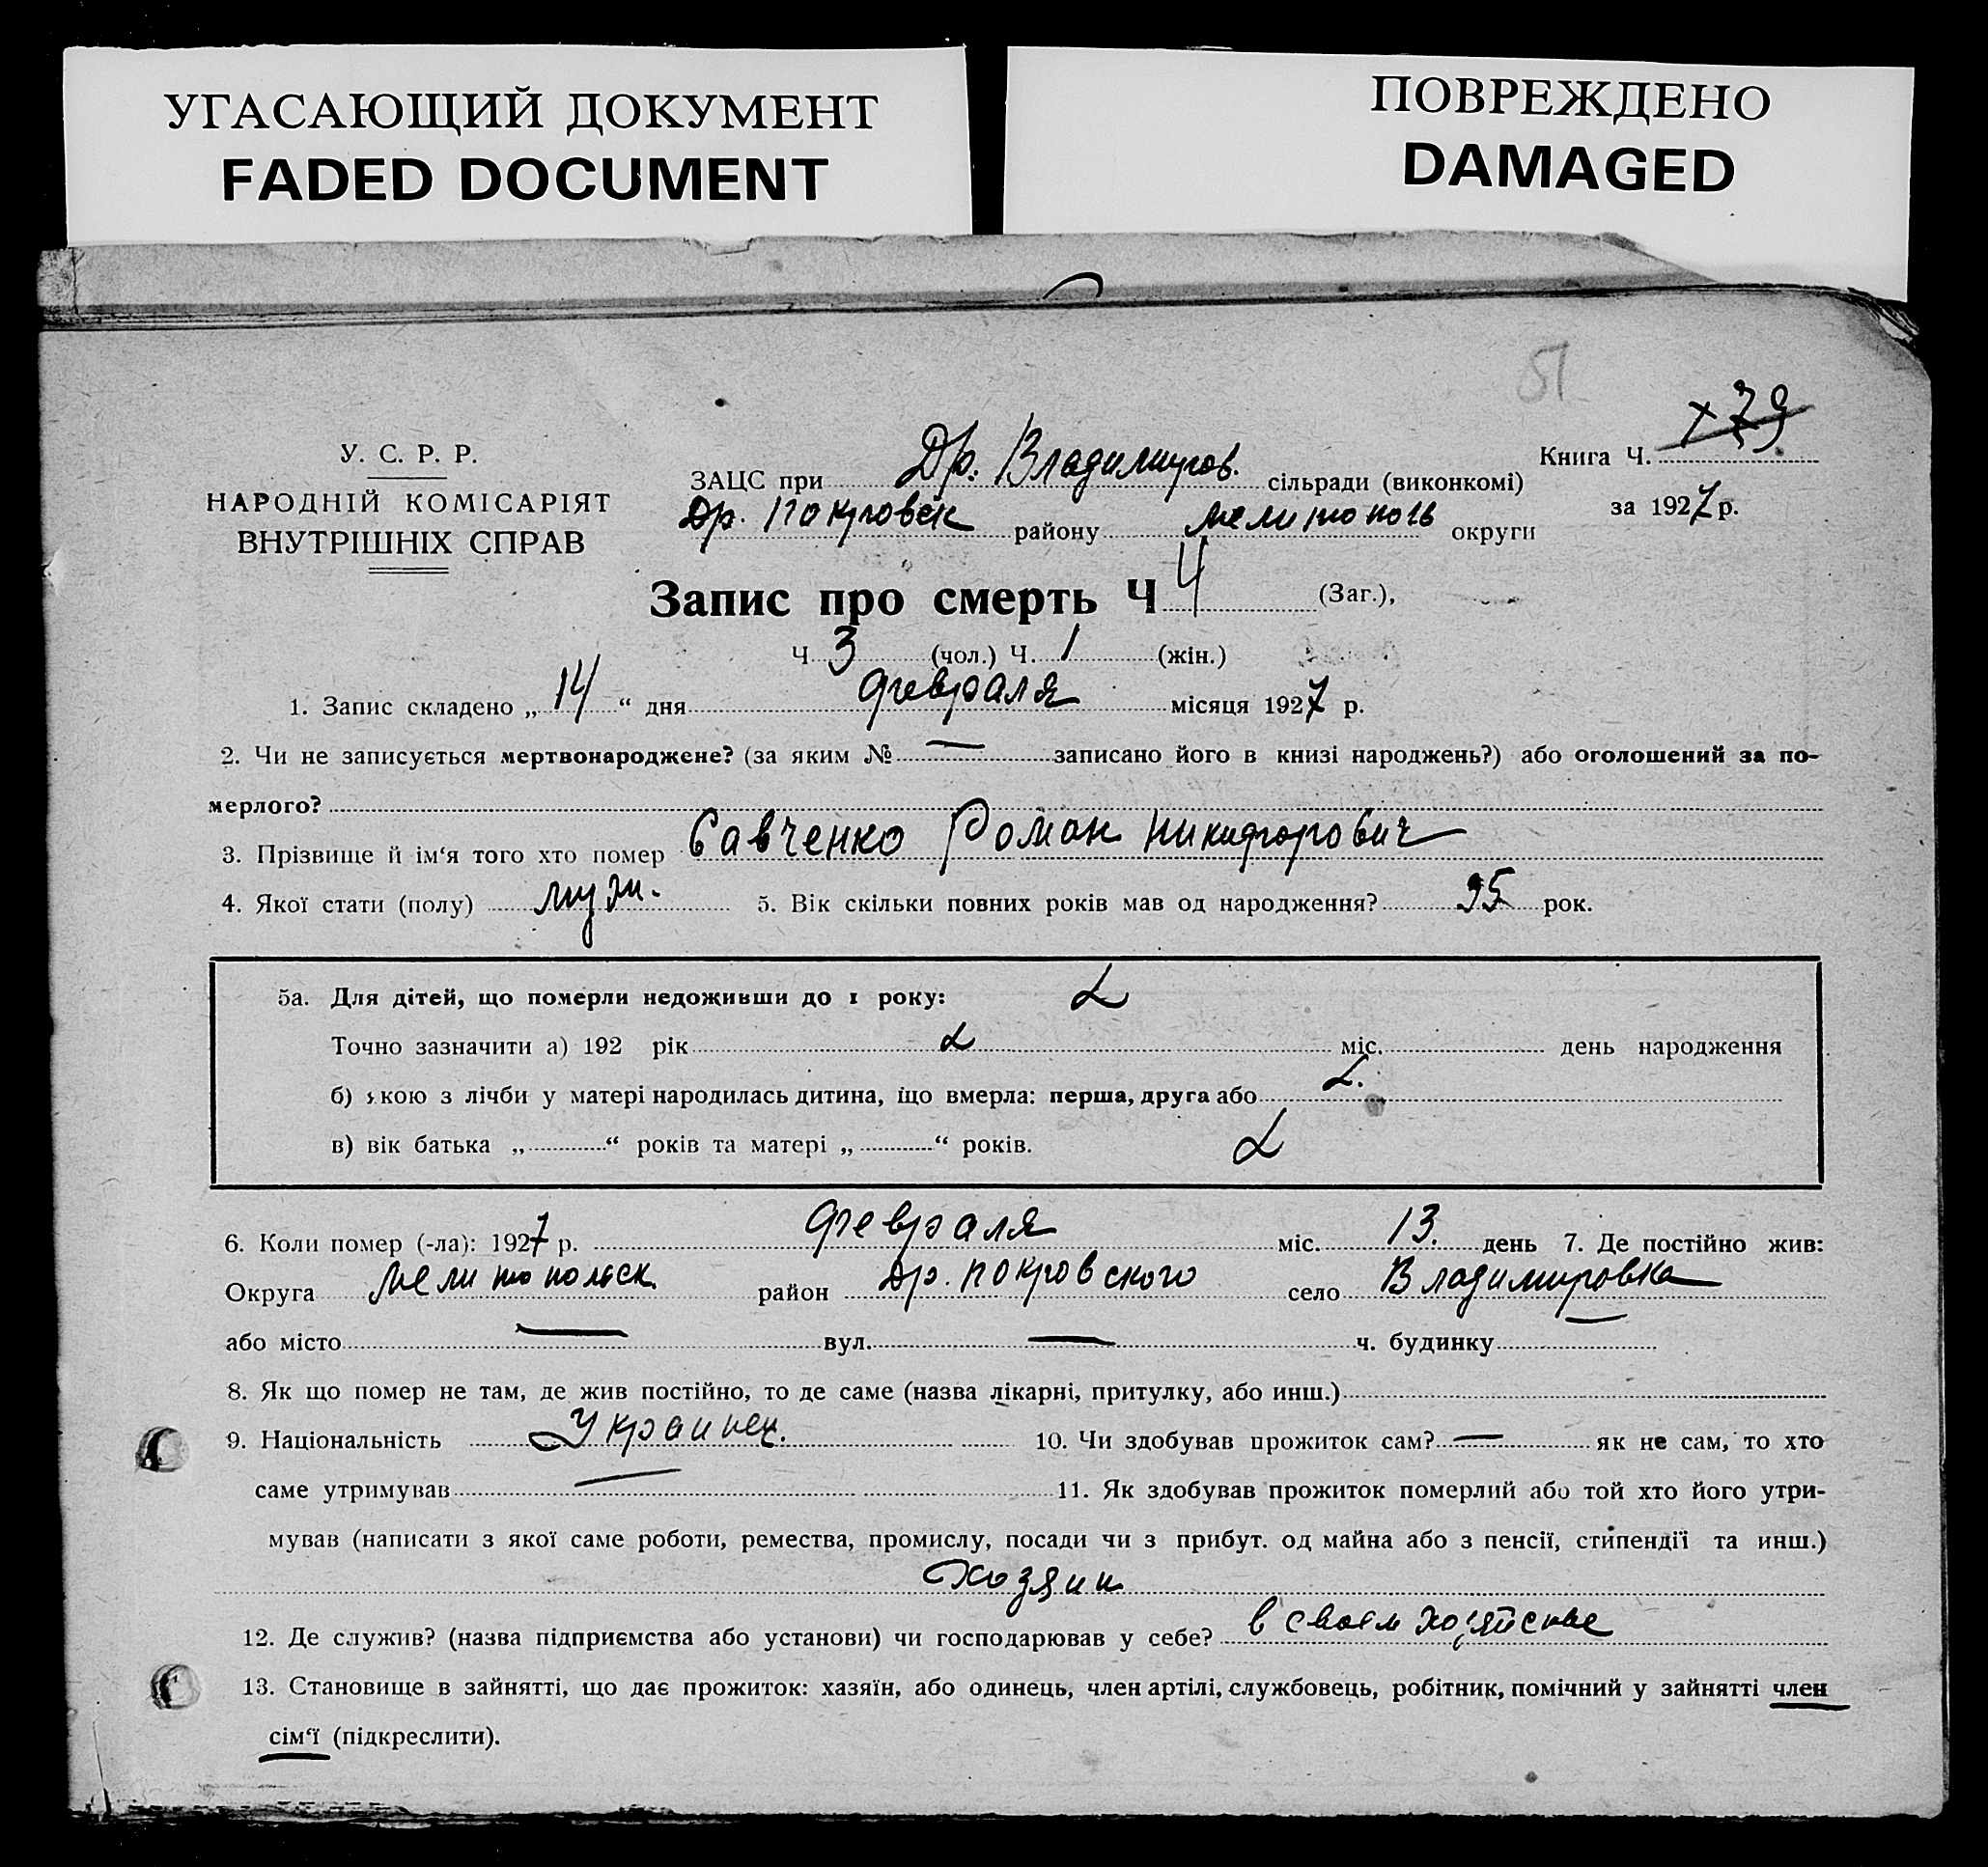 УГАСАЮЩИЙ ДОКУМЕНТ
FADED DOCUMENT
ПОВРЕЖДЕНО
DAMAGED
51
У. С. Р. Р.
НАРОДНІЙ КОМІСАРІЯТ
ВНУТРІШНІХ СПРАВ
Книга Ч. 79
за 1927 р.
ЗАЦС при Др. Владимиров. сільради (виконкомі)
Др. Покровск району Мелитополь округи
Запис про смерть Ч 4 (Заг.),
Ч 3 (чол.) Ч. 1 (жін.)
1. Запис складено „ 14 “ дня февраля місяця 1927 р.
2. Чи не записується мертвонароджене? (за яким № — записано його в книзі народжень?) або оголошений за по-
мерлого?
3. Прізвище й ім‘я того хто помер Савченко Роман Никифорович
4. Якої стати (полу) муж. 5. Вік скільки повних років мав од народження? 95 рок.
5а. Для дітей, що померли недоживши до 1 року:
Точно зазначити а) 192 рік міс. день народження
б) якою з лічби у матері народилась дитина, що вмерла: перша, друга або
в) вік батька „ “ років та матері „ “ років.
6. Коли помер (-ла): 1927 р. февраля міс. 13. день 7. Де постійно жив:
Округа Мелитопольск. район Др. Покровского село Владимировка
або місто — вул. — ч. будинку
8. Як що помер не там, де жив постійно, то де саме (назва лікарні, притулку, або инш.)
9. Національність Украинец. 10. Чи здобував прожиток сам? — як не сам, то хто
саме утримував — 11. Як здобував прожиток померлий або той хто його утри-
мував (написати з якої саме роботи, ремества, промислу, посади чи з прибут. од майна або з пенсії, стипендії та инш.)
Хозяин
12. Де служив? (назва підприємства або установи) чи господарював у себе? в своем хозяйстве
13. Становище в зайнятті, що дає прожиток: хазяїн, або одинець, член артілі, службовець, робітник, помічний у зайнятті член
сім‘ї (підкреслити).